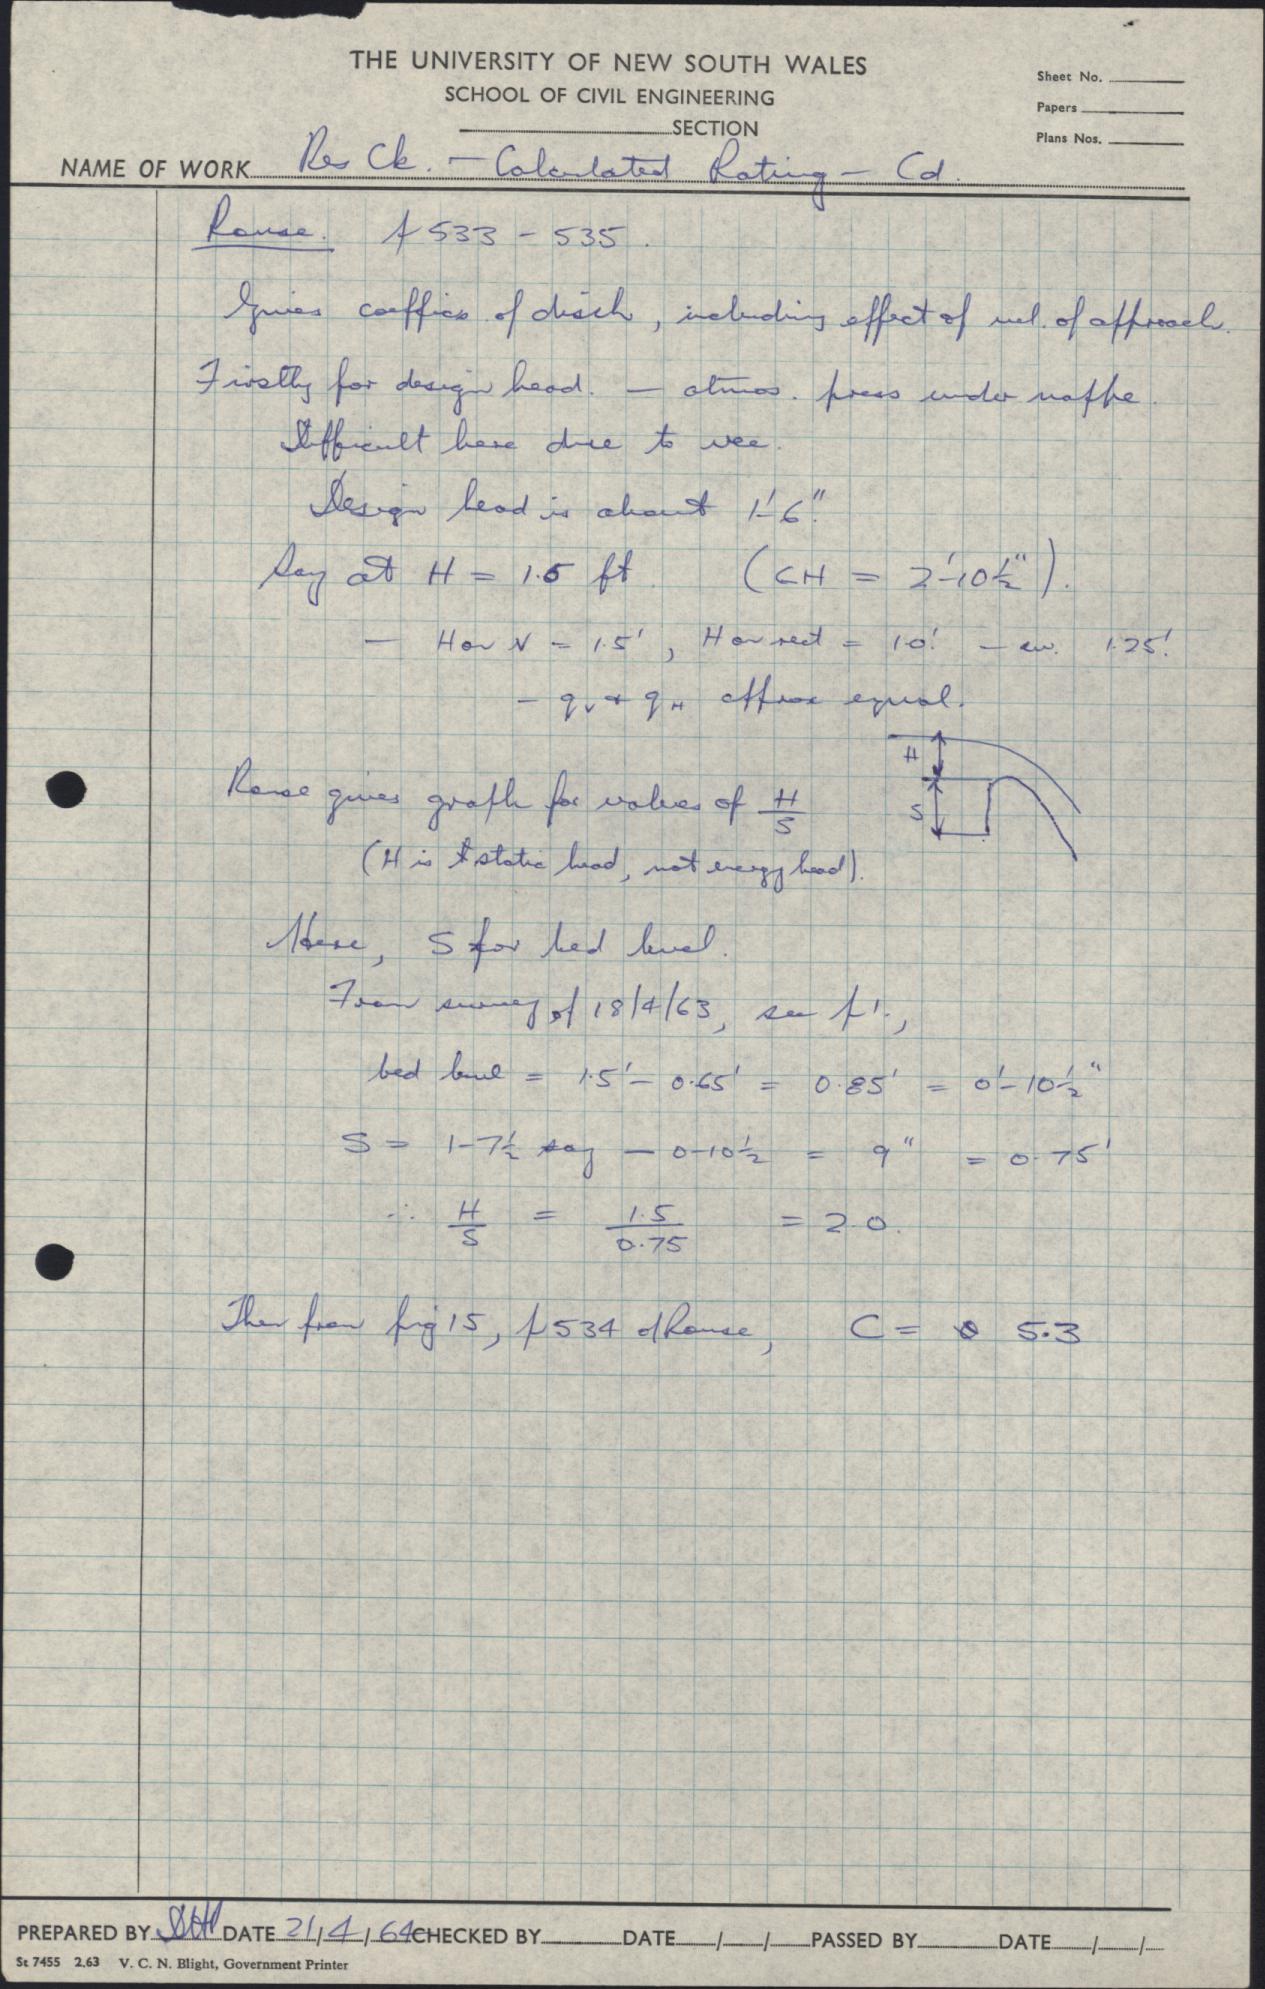 THE UNIVERSITY OF NEW SOUTH WALES
SCHOOL OF CIVIL ENGINEERING
SECTION
Sheet No.
Papers
Plans Nos.
NAME OF WORK Res Ck. - Calculated Rating - Cd.
Rouse. p 533 - 535.
Gives coeffics of disch, including effect of vel. of approach.
Firstly for design head. - atmos. press under nappe.
Difficult here due to vee.
Design head is about 1'-6".
Say at H = 1.5 ft (GH = 2'-10½").
- H on V = 1.5', H on rect = 1.0'. - av. 1.25'.
- qv & qH approx equal.
H
S
Rouse gives graph for values of H/S
(H is static head, not energy head).
Here, S for bed level.
From survey of 18/4/63, see p1.,
bed level = 1.5' - 0.65' = 0.85' = 0'-10½"
S = 1-7½ say - 0-10½ = 9" = 0.75'
∴ H/S = 1.5/0.75 = 2.0.
Then from fig 15, p534 of Rouse, C = 5.3
PREPARED BY DATE 21/4/64 CHECKED BY DATE / / PASSED BY DATE / /
St 7455 2.63 V. C. N. Blight, Government Printer